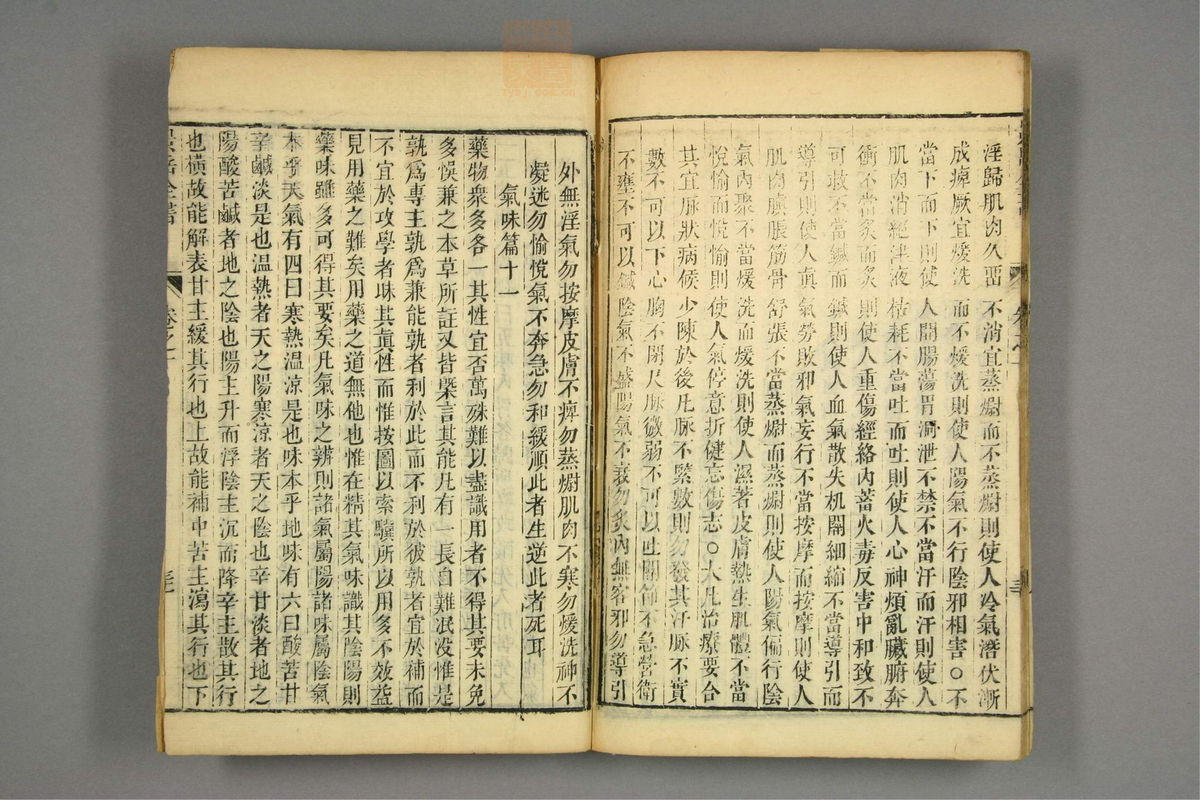 淫歸肌肉久畱不消宜蒸熨而不蒸熨則使人冷氣潛伏漸
成痺厥宜煖洗而不煖洗則使人陽氣不行陰邪相害○不
當下而下則使人開腸蕩胃洞泄不禁不當汗而汗則使人
肌肉消絕津液枯耗不當吐而吐則使人心神煩亂臟腑奔
衝不當灸而灸則使人重傷經絡內蓄火毒反害中和致不
可救不當鍼而鍼則使人血氣散失机關細縮不當導引而
導引則使人眞氣勞敗邪氣妄行不當按摩而按摩則使人
肌肉䐜脹筋骨舒張不當蒸熨而蒸熨則使人陽氣偏行陰
氣內聚不當煖洗而煖洗則使人濕著皮膚熱生肌體不當
悅愉而悅愉則使人氣停意折健忘傷志○大凡治療要合
其宜脉狀病候少陳於後凡脉不緊數則勿發其汗脉不實
數不可以下心胸不閉尺脉微弱不可以吐關節不急營衛
不壅不可以鍼陰氣不盛陽氣不衰勿炙內無客邪勿導引
外無淫氣勿按摩皮膚不痺勿蒸熨肌肉不寒勿煖洗神不
凝迷勿愉悅氣不奔急勿和緩順此者生逆此者死耳
氣味篇十一
藥物衆多各一其性宜否萬殊難以盡識用者不得其要未免
多悞兼之本草所註又皆槩言其能凡有一長自難泯没惟是
孰爲專主孰爲兼能孰者利於此而不利於彼孰者宜於補而
不宜於攻學者昧其眞性而惟按圖以索驥所以用多不效益
見用藥之難矣用藥之道無他也惟在精其氣味識其陰陽則
藥味雖多可得其要矣凡氣味之辨則諸氣屬陽諸味屬陰氣
本乎天氣有四曰寒熱温凉是也味本乎地味有六曰酸苦甘
辛鹹淡是也温熱者天之陽寒凉者天之陰也辛甘淡者地之
陽酸苦鹹者地之陰也陽主升而浮陰主沉而降辛主散其行
也橫故能解表甘主緩其行也上故能補中苦主瀉其行也下
景岳全書
卷之一